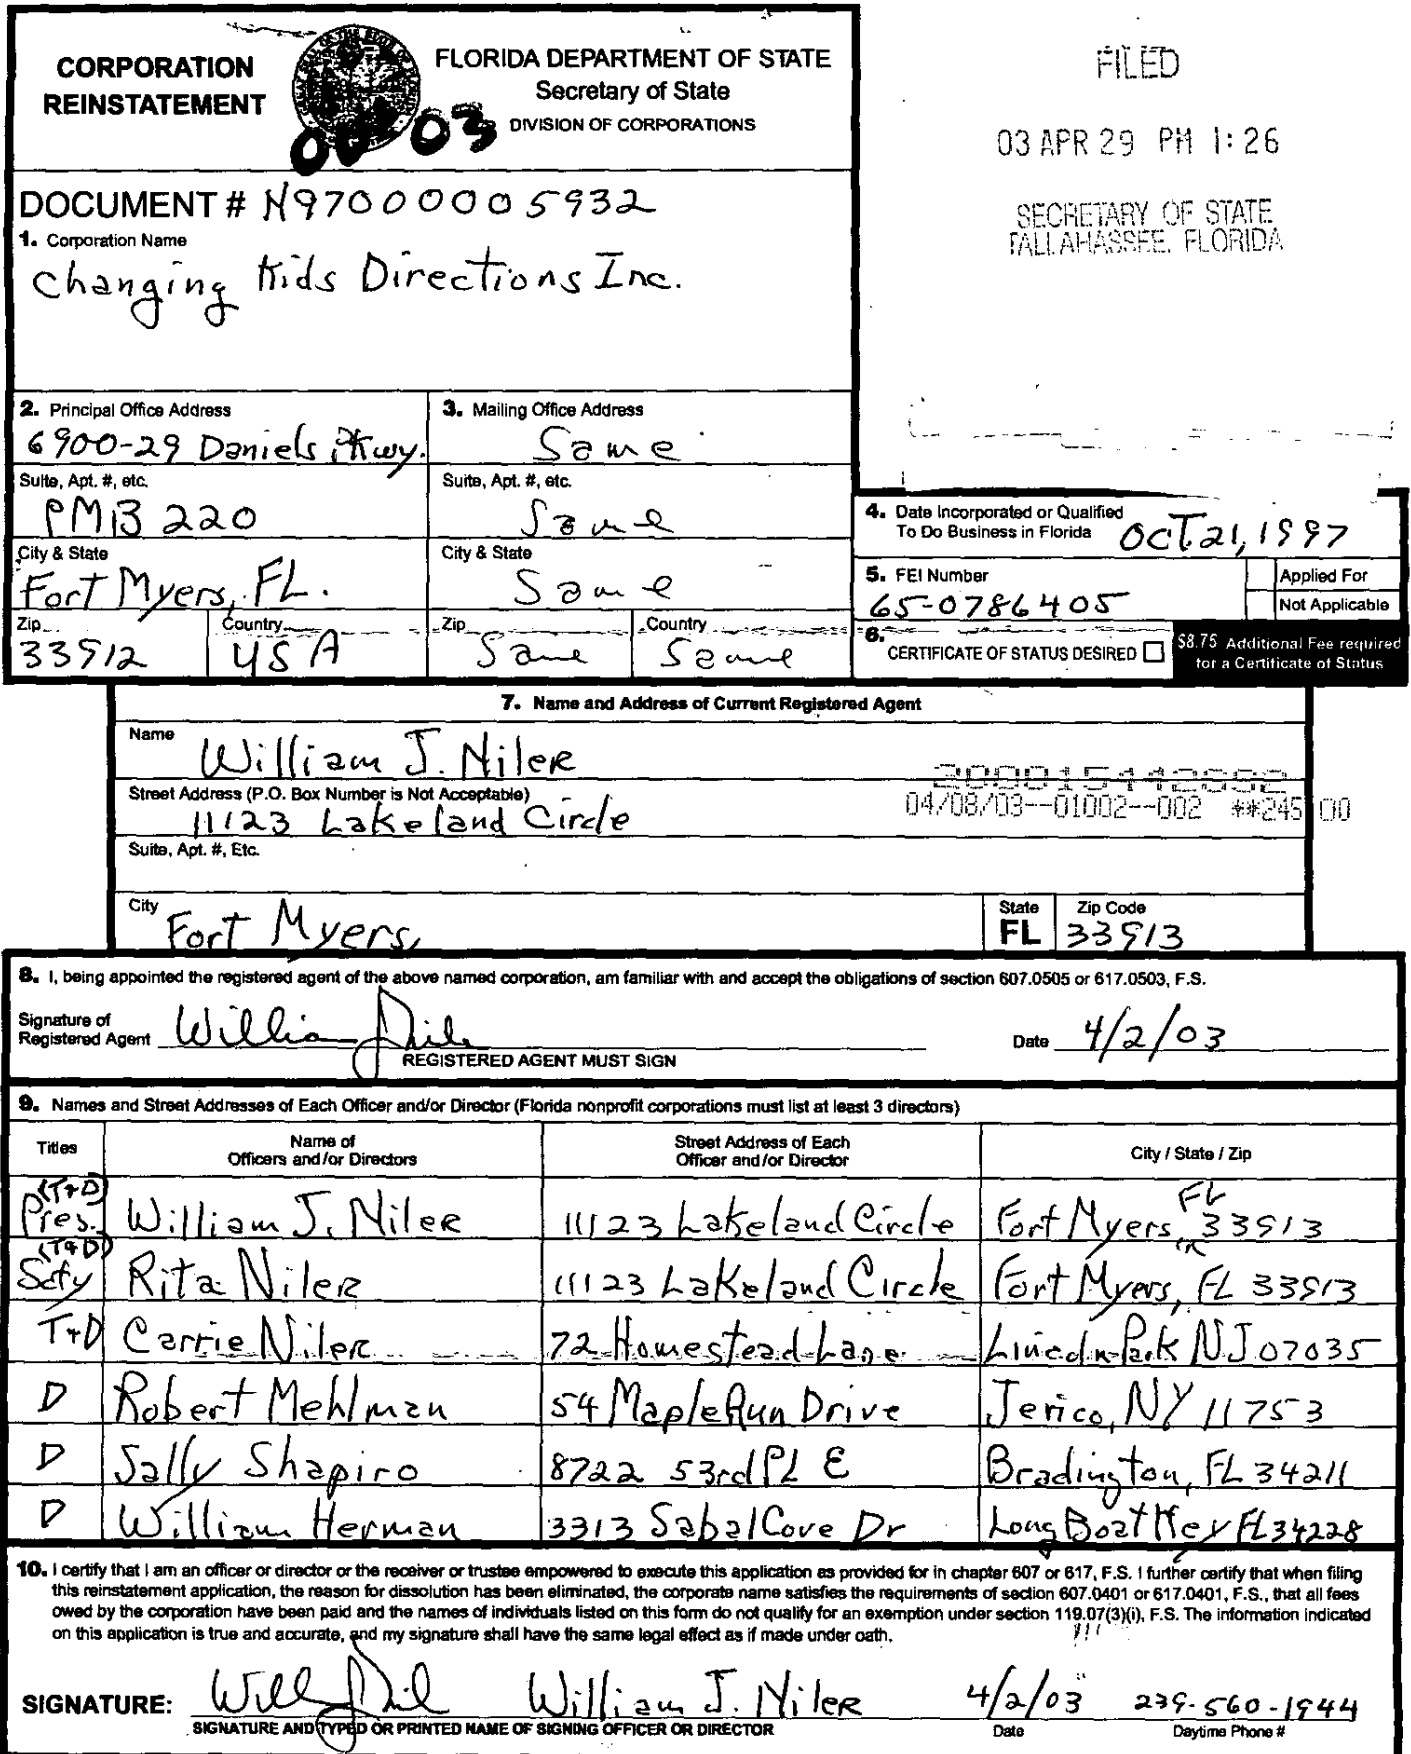 CORPORATION
REINSTATEMENT
FLORIDA DEPARTMENT OF STATE
Secretary of State
DIVISION OF CORPORATIONS
03
FILED
03 APR 29 PM 1:26
SECRETARY OF STATE
TALLAHASSEE, FLORIDA
DOCUMENT # N97000005932
1. Corporation Name
Changing Kids Directions Inc.
2. Principal Office Address
6900-29 Daniels Pkwy.
3. Mailing Office Address
Same
Suite, Apt. #, etc.
PMB 220
Suite, Apt. #, etc.
Same
City & State
Fort Myers, FL.
City & State
Same
Zip
33912
Country
USA
Zip
Same
Country
Same
4. Date Incorporated or Qualified
To Do Business in Florida
OCT. 21, 1997
5. FEI Number
65-0786405
Applied For
Not Applicable
6.
CERTIFICATE OF STATUS DESIRED
$8.75 Additional Fee required
for a Certificate of Status
7. Name and Address of Current Registered Agent
Name
William J. Niler
Street Address (P.O. Box Number is Not Acceptable)
11123 Lakeland Circle
04/08/03--01002--002 **245.00
Suite, Apt. #, Etc.
City
Fort Myers,
State
FL
Zip Code
33913
8. I, being appointed the registered agent of the above named corporation, am familiar with and accept the obligations of section 607.0505 or 617.0503, F.S.
Signature of
Registered Agent
William Niler
REGISTERED AGENT MUST SIGN
Date 4/2/03
9. Names and Street Addresses of Each Officer and/or Director (Florida nonprofit corporations must list at least 3 directors)
Titles
Name of
Officers and/or Directors
Street Address of Each
Officer and/or Director
City / State / Zip
(T+D)
Pres. William J. Niler 11123 Lakeland Circle Fort Myers, FL 33913
(T+D)
Scty Rita Niler 11123 Lakeland Circle Fort Myers, FL 33913
T+D Carrie Niler 72 Homestead Lane Lincoln Park NJ 07035
D Robert Mehlman 54 Maple Run Drive Jerico, NY 11753
D Sally Shapiro 8722 53rd PL E Bradington, FL 34211
D William Herman 3313 Sabal Cove Dr Long Boat Key FL 34228
10. I certify that I am an officer or director or the receiver or trustee empowered to execute this application as provided for in chapter 607 or 617, F.S. I further certify that when filing
this reinstatement application, the reason for dissolution has been eliminated, the corporate name satisfies the requirements of section 607.0401 or 617.0401, F.S., that all fees
owed by the corporation have been paid and the names of individuals listed on this form do not qualify for an exemption under section 119.07(3)(i), F.S. The information indicated
on this application is true and accurate, and my signature shall have the same legal effect as if made under oath.
SIGNATURE: William J. Niler 4/2/03 239-560-1944
SIGNATURE AND TYPED OR PRINTED NAME OF SIGNING OFFICER OR DIRECTOR
Date
Daytime Phone #